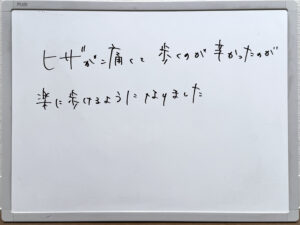 PLUS
ヒザが痛くて 歩くのが 辛かったのが
楽に歩けるようになりました